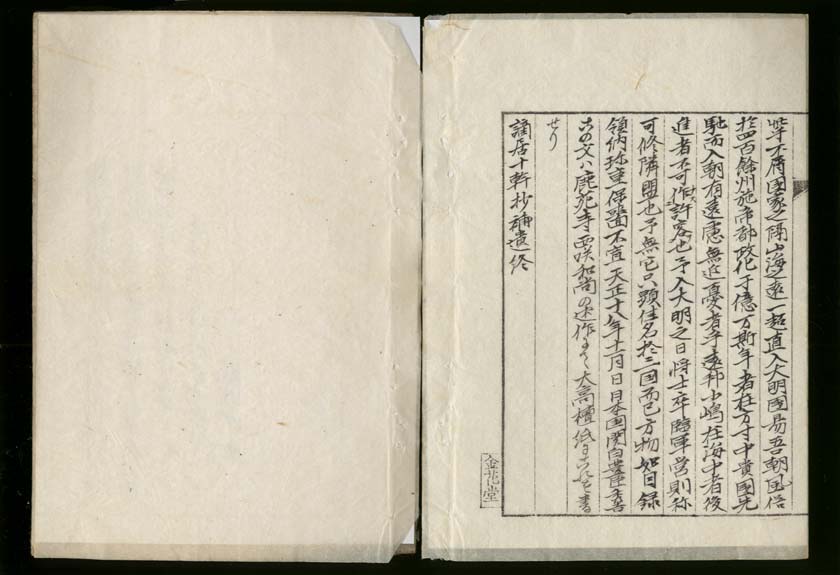 不屑國家之隔山海之遠一超直入大明國易吾朝風俗
於四百餘州施帝都政化于億万斯年者在方寸中貴國先
馳而入朝有遠慮無近憂者乎遠邦小嶋在海中者後
進者不可作許容也予入大明之日將士卒臨軍営則称
可修隣盟也予無它只顕佳名於三国而已方物如目録
領納珍重保嗇不宣天正十八年十一月日日本国関白
この文ハ鹿苑寺西咲和尚の述作 大高檀紙 書
せり
謫居十軒抄補遺終
金花堂